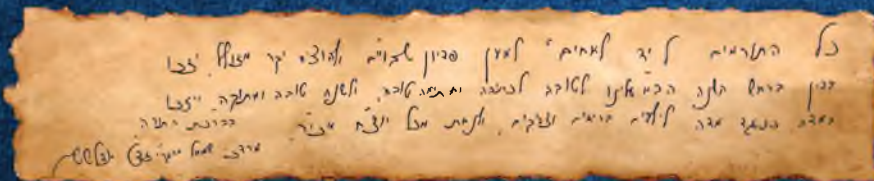 כל התורמים ל"יד לאחים" למען פדיון שבויים ולהוציא יקר מזולל, יזכו
בדין בראש השנה הבא עלינו לטובה לכתיבה וחתימה טובה, ולשנה טובה ומתוקה, ויזכו
במדה כנגד מדה לילדים בריאים, ולנחת מכל יוצ"ח
בברכת התורה